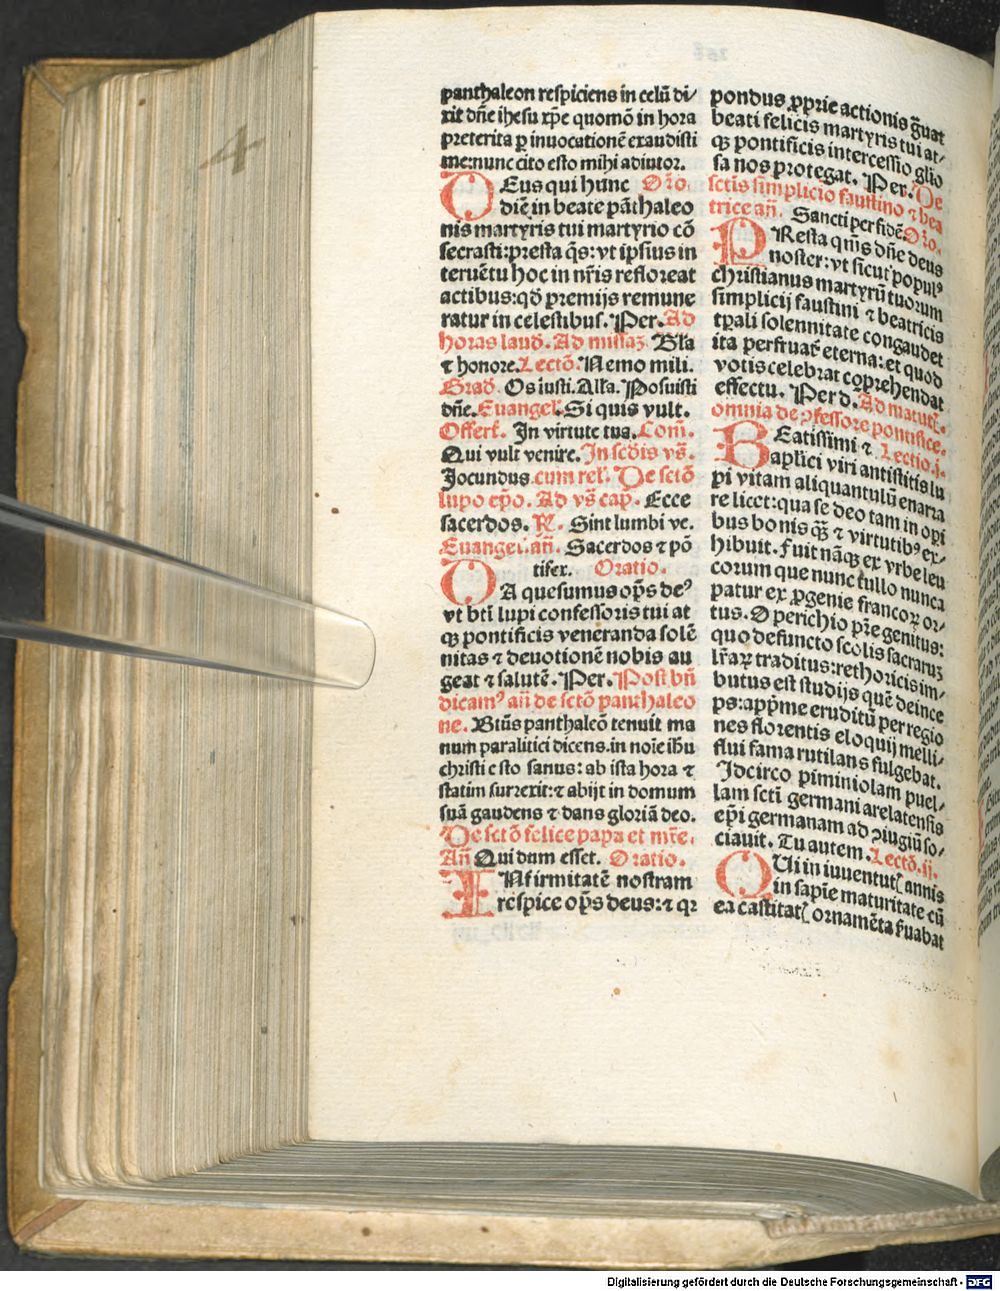 4
panthaleon respiciens in celū di/
xit dñe ihesu xp̄e quomō in hora
preterita ꝑ inuocationē exaudisti
me:nunc cito esto mihi adiutor.
DEus qui hunc Oŕo.
diē in beate pāthaleo
nis martyris tui martyrio cō
secrasti:presta q̄s:vt ipsius in
teruētu hoc in nr̄is refloreat
actibus:qď premijs remune
ratur in celestibus. Per. Ad
horas lauď. Ad missaꝫ Gla
⁊ honore. Lectō. Nemo mili.
Grad. Os iusti. Alľa. Posuisti
dñe. Euangel. Si quis vult.
Offerť. In virtute tua. Com̄.
Qui vult venire. In scďis vš.
Jocundus cum rel. De sctō
lupo ep̄o. Ad vš cap. Ecce
sacerdos. R. Sint lumbi ve.
Euangel. añ. Sacerdos ⁊ pō
tifex. Oratio.
DA quesumus op̄s deꝰ
vt bt̄i lupi confessoris tui at
qꝫ pontificis veneranda solē
nitas ⁊ deuotionē nobis au
geat ⁊ salutē. Per. Post bn̄
dicamꝰ añ de sctō panthaleo
ne. Btūs panthaleō tenuit ma
num paralitici dicens. in noie ihū
christi esto sanus: ab ista hora ⁊
statim surrexit:⁊ abijt in domum
suā gaudens ⁊ dans gloriā deo.
De sctō felice papa et mr̄e.
Añ Qui dum esset. Oratio.
INfirmitatē nostram
respice op̄s deus:⁊ qꝛ
pondus ꝓprie actionis g̃uat
beati felicis martyris tui at/
qꝫ pontificis intercessio glio
sa nos protegat. Per. De
sctis simplicio faustino ⁊ bea
trice añ. Sancti per fidē. Oŕo.
PResta qm̄s dñe deus
noster: vt sicut populꝰ
christianus martyrū tuorum
simplicij faustini ⁊ beatricis
tꝑali solennitate congaudet
ita perfruať eterna: et quod
votis celebrat coprehendat
effectu. Per d. Ad matuť.
omnia de ꝯfessore pontifice.
BEatissimi ⁊ Lectio. j.
apľici viri antistitis lu
pi vitam aliquantulū enarra
re licet: qua se deo tam in opi
bus bonis qꝫ ⁊ virtutibꝰ ex/
hibuit. Fuit nāqꝫ ex vrbe leu
corum que nunc tullo nunca
patur ex ꝓgenie francoꝝ or/
tus. D perichio pr̄e genitus:
quo defuncto scolis sacraruꝫ
lr̄aꝝ traditus: rethoricis im/
butus est studijs quē deince
ps: apprīme eruditū per regio
nes florentis eloquij melli/
flui fama rutilans fulgebat.
Idcirco piminiolam puel/
lam scti germani arelatensis
ep̄i germanam ad ꝯiugiū so/
ciauit. Tu autem. Lectō. ij.
QUi in iuuentuť annis
in sapīe maturitate cū
ea castitať ornamēta ẜuabat
Digitalisierung gefördert durch die Deutsche Forschungsgemeinschaft - DFG